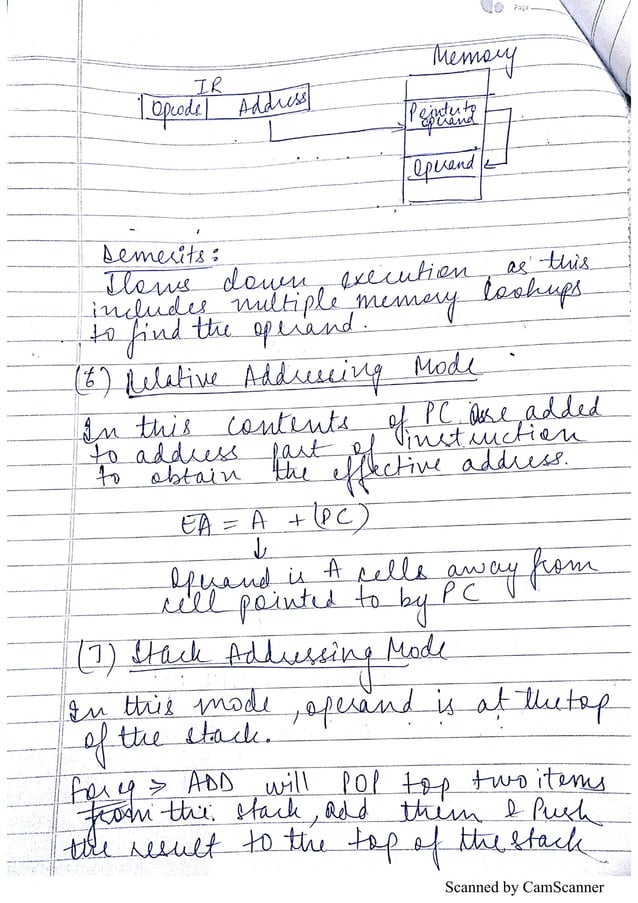 Page
Memory
IR
Opcode Address
Pointer to
operand
Operand
Demerits:
Slows down execution, as this
includes multiple memory lookups
to find the operand.
(6) Relative Addressing Mode
In this contents of PC are added
to address part of instruction
to obtain the effective address.
EA = A + (PC)
↓
Operand is A cells away from
cell pointed to by PC
(7) Stack Addressing Mode
In this mode, operand is at the top
of the stack.
for eg > ADD will POP top two items
from the stack, add them & Push
the result to the top of the stack
Scanned by CamScanner